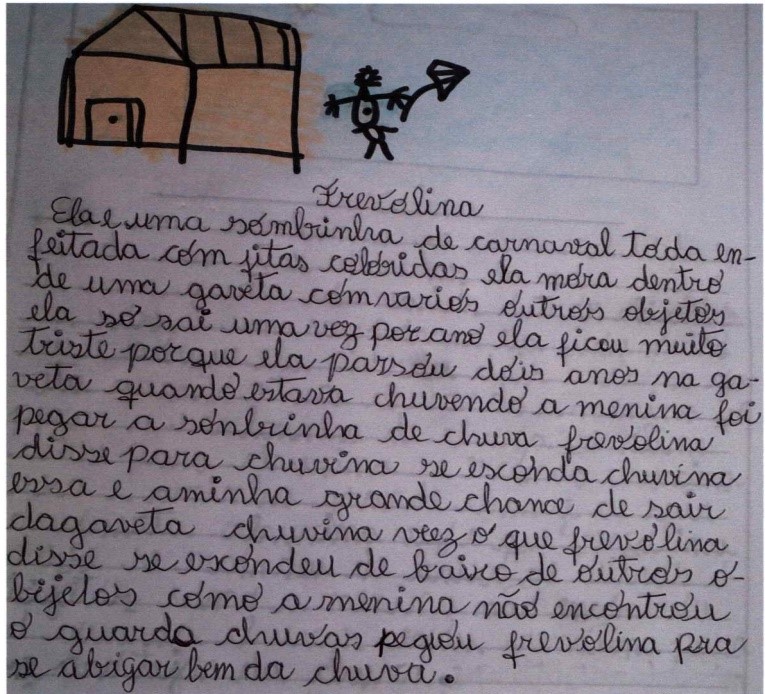 Frevolina
Ela e uma sombrinha de carnaval toda en-
feitada com fitas coloridas ela mora dentro
de uma gaveta comvarios outros objetos
ela so sai uma vez por ano ela ficou muito
triste porque ela passou dois anos na ga-
veta quando estava chuvendo a menina foi
pegar a sonbrinha de chuva frevolina
disse para chuvina se esconda chuvina
essa e aminha grande chance de sair
dagaveta chuvina veez o que frevolina
disse se escondeu de baixo de outros o-
bijetos como a menina não encontrou
o guarda chuvas pegou frevolina pra
se abigar bem da chuva.